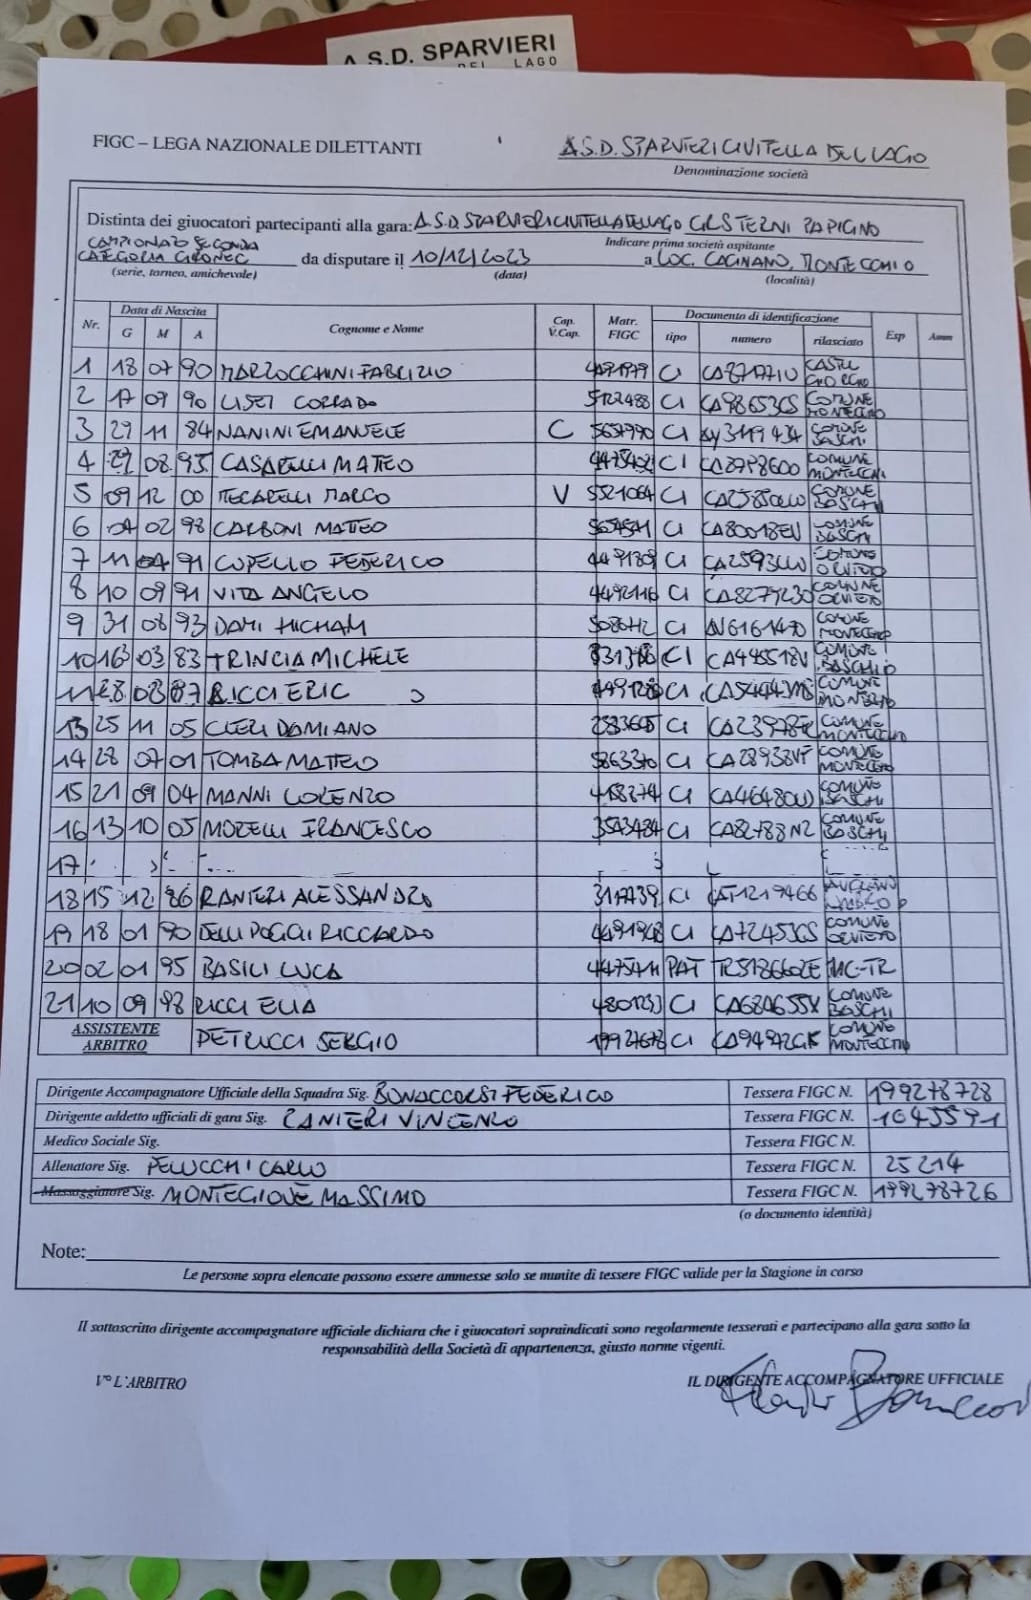 A.S.D. SPARVIERI
DEL LAGO
FIGC – LEGA NAZIONALE DILETTANTI
A.S.D. SPARVIERI CIVITELLA DEL LAGO
Denominazione società
Distinta dei giuocatori partecipanti alla gara: A.S.D. SPARVIERI CIVITELLA DEL LAGO TERNI PAPIGNO
Indicare prima società ospitante
CAMPIONATO SECONDA
CATEGORIA GIRONE C da disputare il 10/12/2023 a LOC. COCINANO, MONTECCHIO
(serie, torneo, amichevole) (data) (località)
Nr. Data di Nascita G M A Cognome e Nome Cap. V.Cap. Matr. FIGC Documento di identificazione tipo numero rilasciato Esp Amm
1 18 07 90 MARZOCCHINI FABRIZIO 4491979 CI CASTEL GIORGIO
2 17 09 90 LISEI CORRADO 5122488 CI CA98653CS COMUNE MONTECCHIO
3 29 11 84 NANINI EMANUELE C CI AY3119434 COMUNE BASCHI
4 08 95 CASARELLI MATTEO CI COMUNE MONTECCHIO
5 09 12 00 TECARELLI MARCO V 5521064 CI COMUNE BASCHI
6 02 98 CARBONI MATTEO CI CA80018EV COMUNE BASCHI
7 11 04 91 CUPELLO FEDERICO 4491309 CI COMUNE ORVIETO
8 10 09 91 VITA ANGELO 4492116 CI CA8279230 COMUNE ORVIETO
9 31 08 93 DAMI HICHAM CI COMUNE MONTECCHIO
10 16 03 83 TRINCIA MICHELE CI CA44551BV COMUNE BASCHI
11 28 08 87 RICCI ERIC CI COMUNE MONTECCHIO
13 25 11 05 CLERI DAMIANO CI COMUNE MONTECCHIO
14 28 07 01 TOMBA MATTEO 5863370 CI CA28938VT COMUNE MONTECCHIO
15 21 09 04 MANNI LORENZO 4158274 CI COMUNE BASCHI
16 13 10 05 MORELLI FRANCESCO 3543484 CI CA82788NZ COMUNE BASCHI
17
18 15 12 86 RANIERI ALESSANDRO 3117439 CI AT1219466
19 18 01 90 DELLI POGGI RICCARDO 4491948 CI CA72453GS COMUNE ORVIETO
20 02 01 95 BASILI LUCA PAT TR5186602E MC-TR
21 10 09 98 RICCI ELIA 4801233 CI CA68465SX COMUNE BASCHI
ASSISTENTE ARBITRO PETRUCCI SERGIO CI CA94942GK COMUNE MONTECCHIO
Dirigente Accompagnatore Ufficiale della Squadra Sig. BONACCORSI FEDERICO Tessera FIGC N. 199278728
Dirigente addetto ufficiali di gara Sig. RANIERI VINCENZO Tessera FIGC N. 1045591
Medico Sociale Sig. Tessera FIGC N.
Allenatore Sig. PELUCCHI CARLO Tessera FIGC N. 25214
Massaggiatore Sig. MONTEGIOVE MASSIMO Tessera FIGC N. 199278726
(o documento identità)
Note:
Le persone sopra elencate possono essere ammesse solo se munite di tessere FIGC valide per la Stagione in corso
Il sottoscritto dirigente accompagnatore ufficiale dichiara che i giuocatori sopraindicati sono regolarmente tesserati e partecipano alla gara sotto la
responsabilità della Società di appartenenza, giusto norme vigenti.
V° L'ARBITRO IL DIRIGENTE ACCOMPAGNATORE UFFICIALE